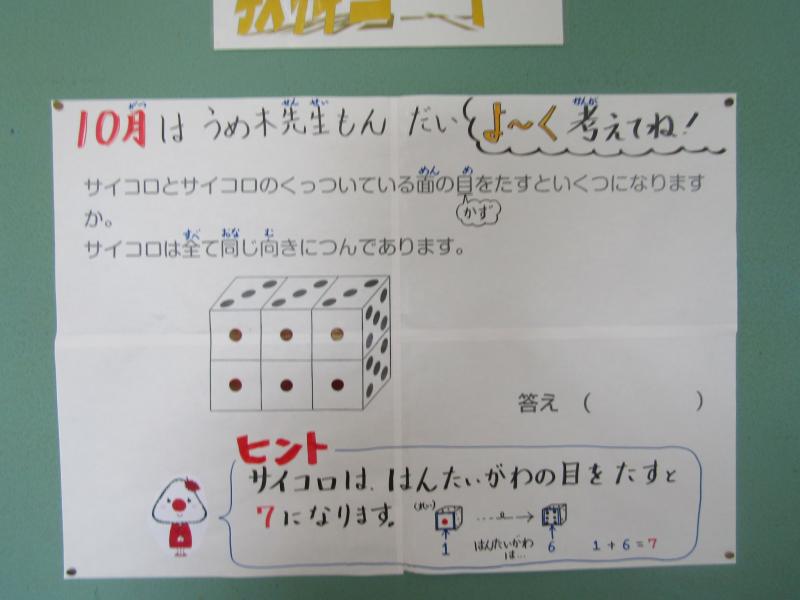 10月は うめ木先生もんだい よ〜く考えてね!
がつ せん せい かんが
サイコロとサイコロのくっついている面の目をたすといくつになります
めん め
か。
かず
サイコロは全て同じ向きにつんであります。
すべ おな む
答え ( )
ヒント
サイコロは、はんたいがわの目をたすと
7になります。
(れい)
1 はんたいがわは… 6 1+6=7